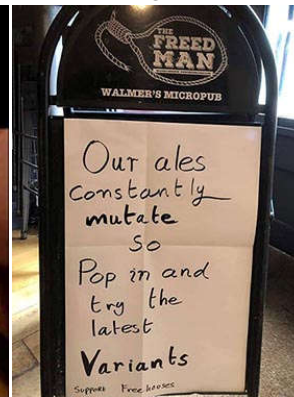 THE
FREED
MAN
WALMER'S MICROPUB
Our ales
constantly
mutate
so
Pop in and
try the
latest
Variants
Support Free houses